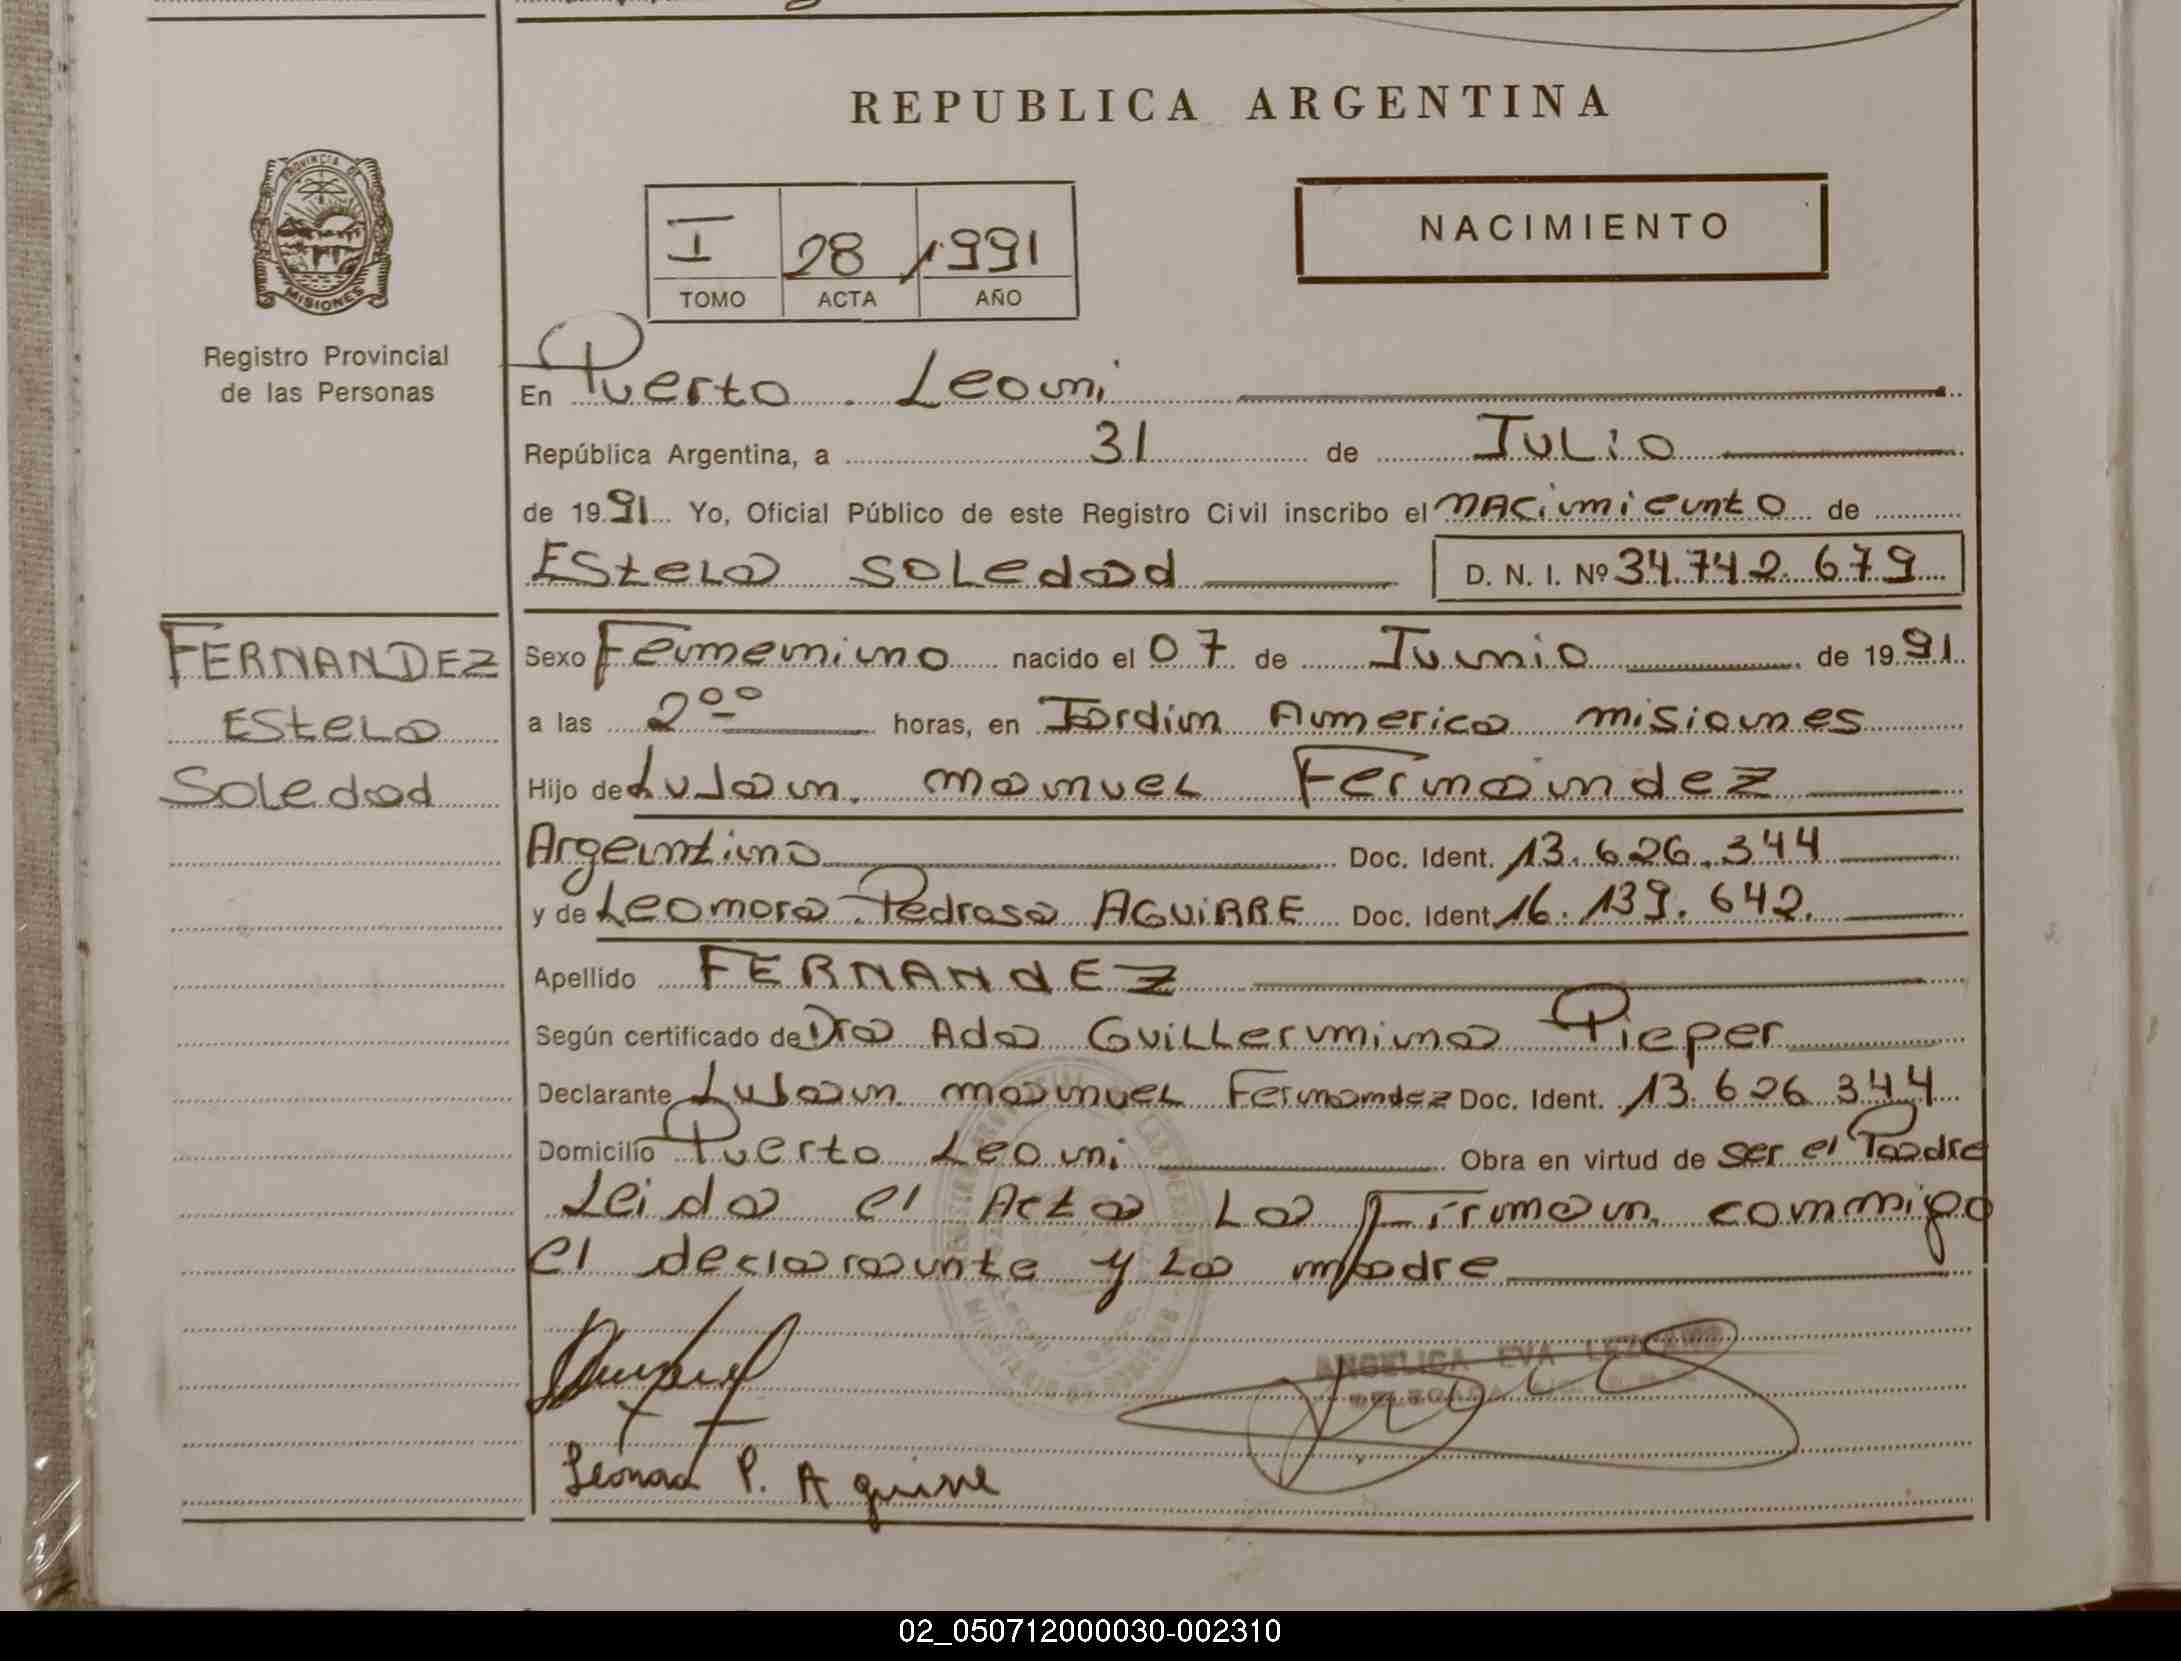 REPUBLICA ARGENTINA
PROVINCIA DE
MISIONES
Registro Provincial
de las Personas
I 28 1991
TOMO ACTA AÑO
NACIMIENTO
En Puerto Leoni
República Argentina, a 31 de Julio
de 1991 Yo, Oficial Público de este Registro Civil inscribo el nacimiento de
Estela Soledad D. N. I. Nº 34.742.679
FERNANDEZ
Estela
Soledad
Sexo Femenino nacido el 07 de Junio de 1991
a las 2⁰⁰ horas, en Jardin America misiones
Hijo de Lujan manuel Fernandez
Argentino Doc. Ident. 13.626.344
y de Leonora Pedrosa AGUIRRE Doc. Ident. 16.139.642.
Apellido FERNANDEZ
Según certificado de Dra Ada Guillermina Pieper
Declarante Lujan manuel Fernandez Doc. Ident. 13.626.344
Domicilio Puerto Leoni Obra en virtud de ser el Padre
Leida el Acta La Firman conmigo
el declarante y La madre
ANGELICA EVA LEZCANO
Leonora P. Aguirre
02_050712000030-002310